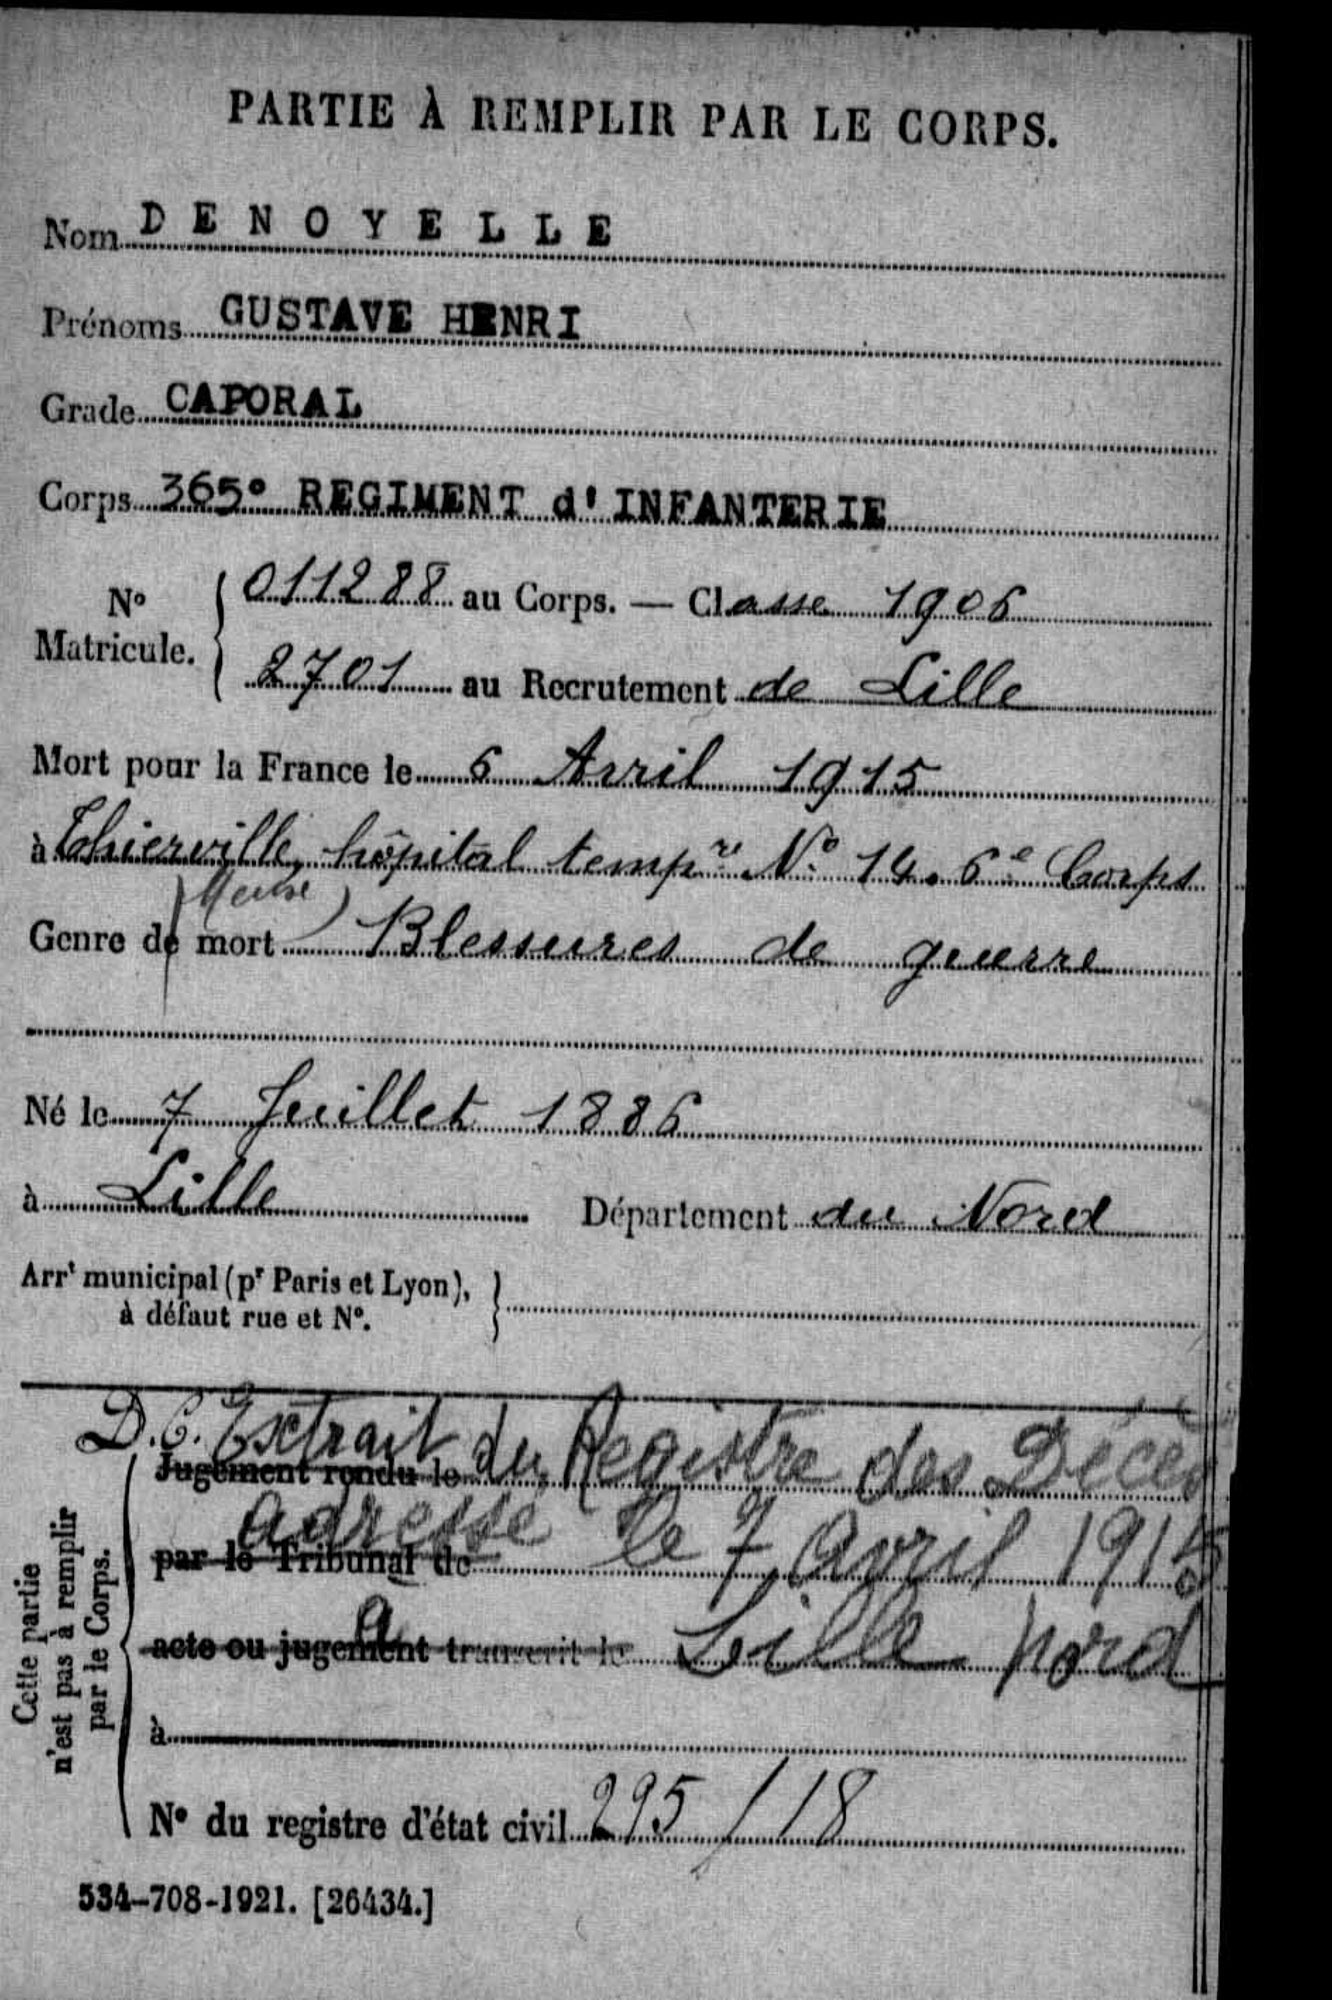 PARTIE À REMPLIR PAR LE CORPS.
Nom DENOYELLE
Prénoms GUSTAVE HENRI
Grade CAPORAL
Corps 365° REGIMENT d'INFANTERIE
N° Matricule. { 011288 au Corps. — Classe 1906
2701 au Recrutement de Lille
Mort pour la France le 6 Avril 1915
à Thierville, hôpital tempre N° 14. 6e Corps
(Meuse)
Genre de mort Blessures de guerre
Né le 7 Juillet 1886
à Lille Département du Nord
Arrt municipal (pr Paris et Lyon), à défaut rue et N°. }
D.C. Extrait du Registre des Décès
Jugement rendu le
adressé le 7 Avril 1915
par le Tribunal de
a Lille Nord
acte ou jugement transcrit le
à
N° du registre d'état civil 295/18
Cette partie n'est pas à remplir par le Corps.
534-708-1921. [26434.]